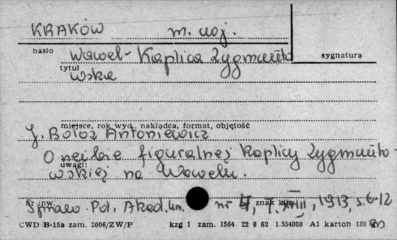 KRAKÓW m. woj.
hasło Wawel - Kaplica Zygmunto
sygnatura
tytuł wska
miejsce, rok wyd., nakładca, format, objętość
J. Bołoz Antoniewicz
O rzeźbie figuralnej kaplicy Zygmunto-
uwagi: wskiej na Wawelu.
Nr inw. znak
Spraw. Pol. Akad. Um. nr 4, T. XVIII, 1913, s. 6-12
CWD B-15a zam. 2006/ZW/P kzg 1 zam. 1564 22 8 62 1.554000 A1 karton 180